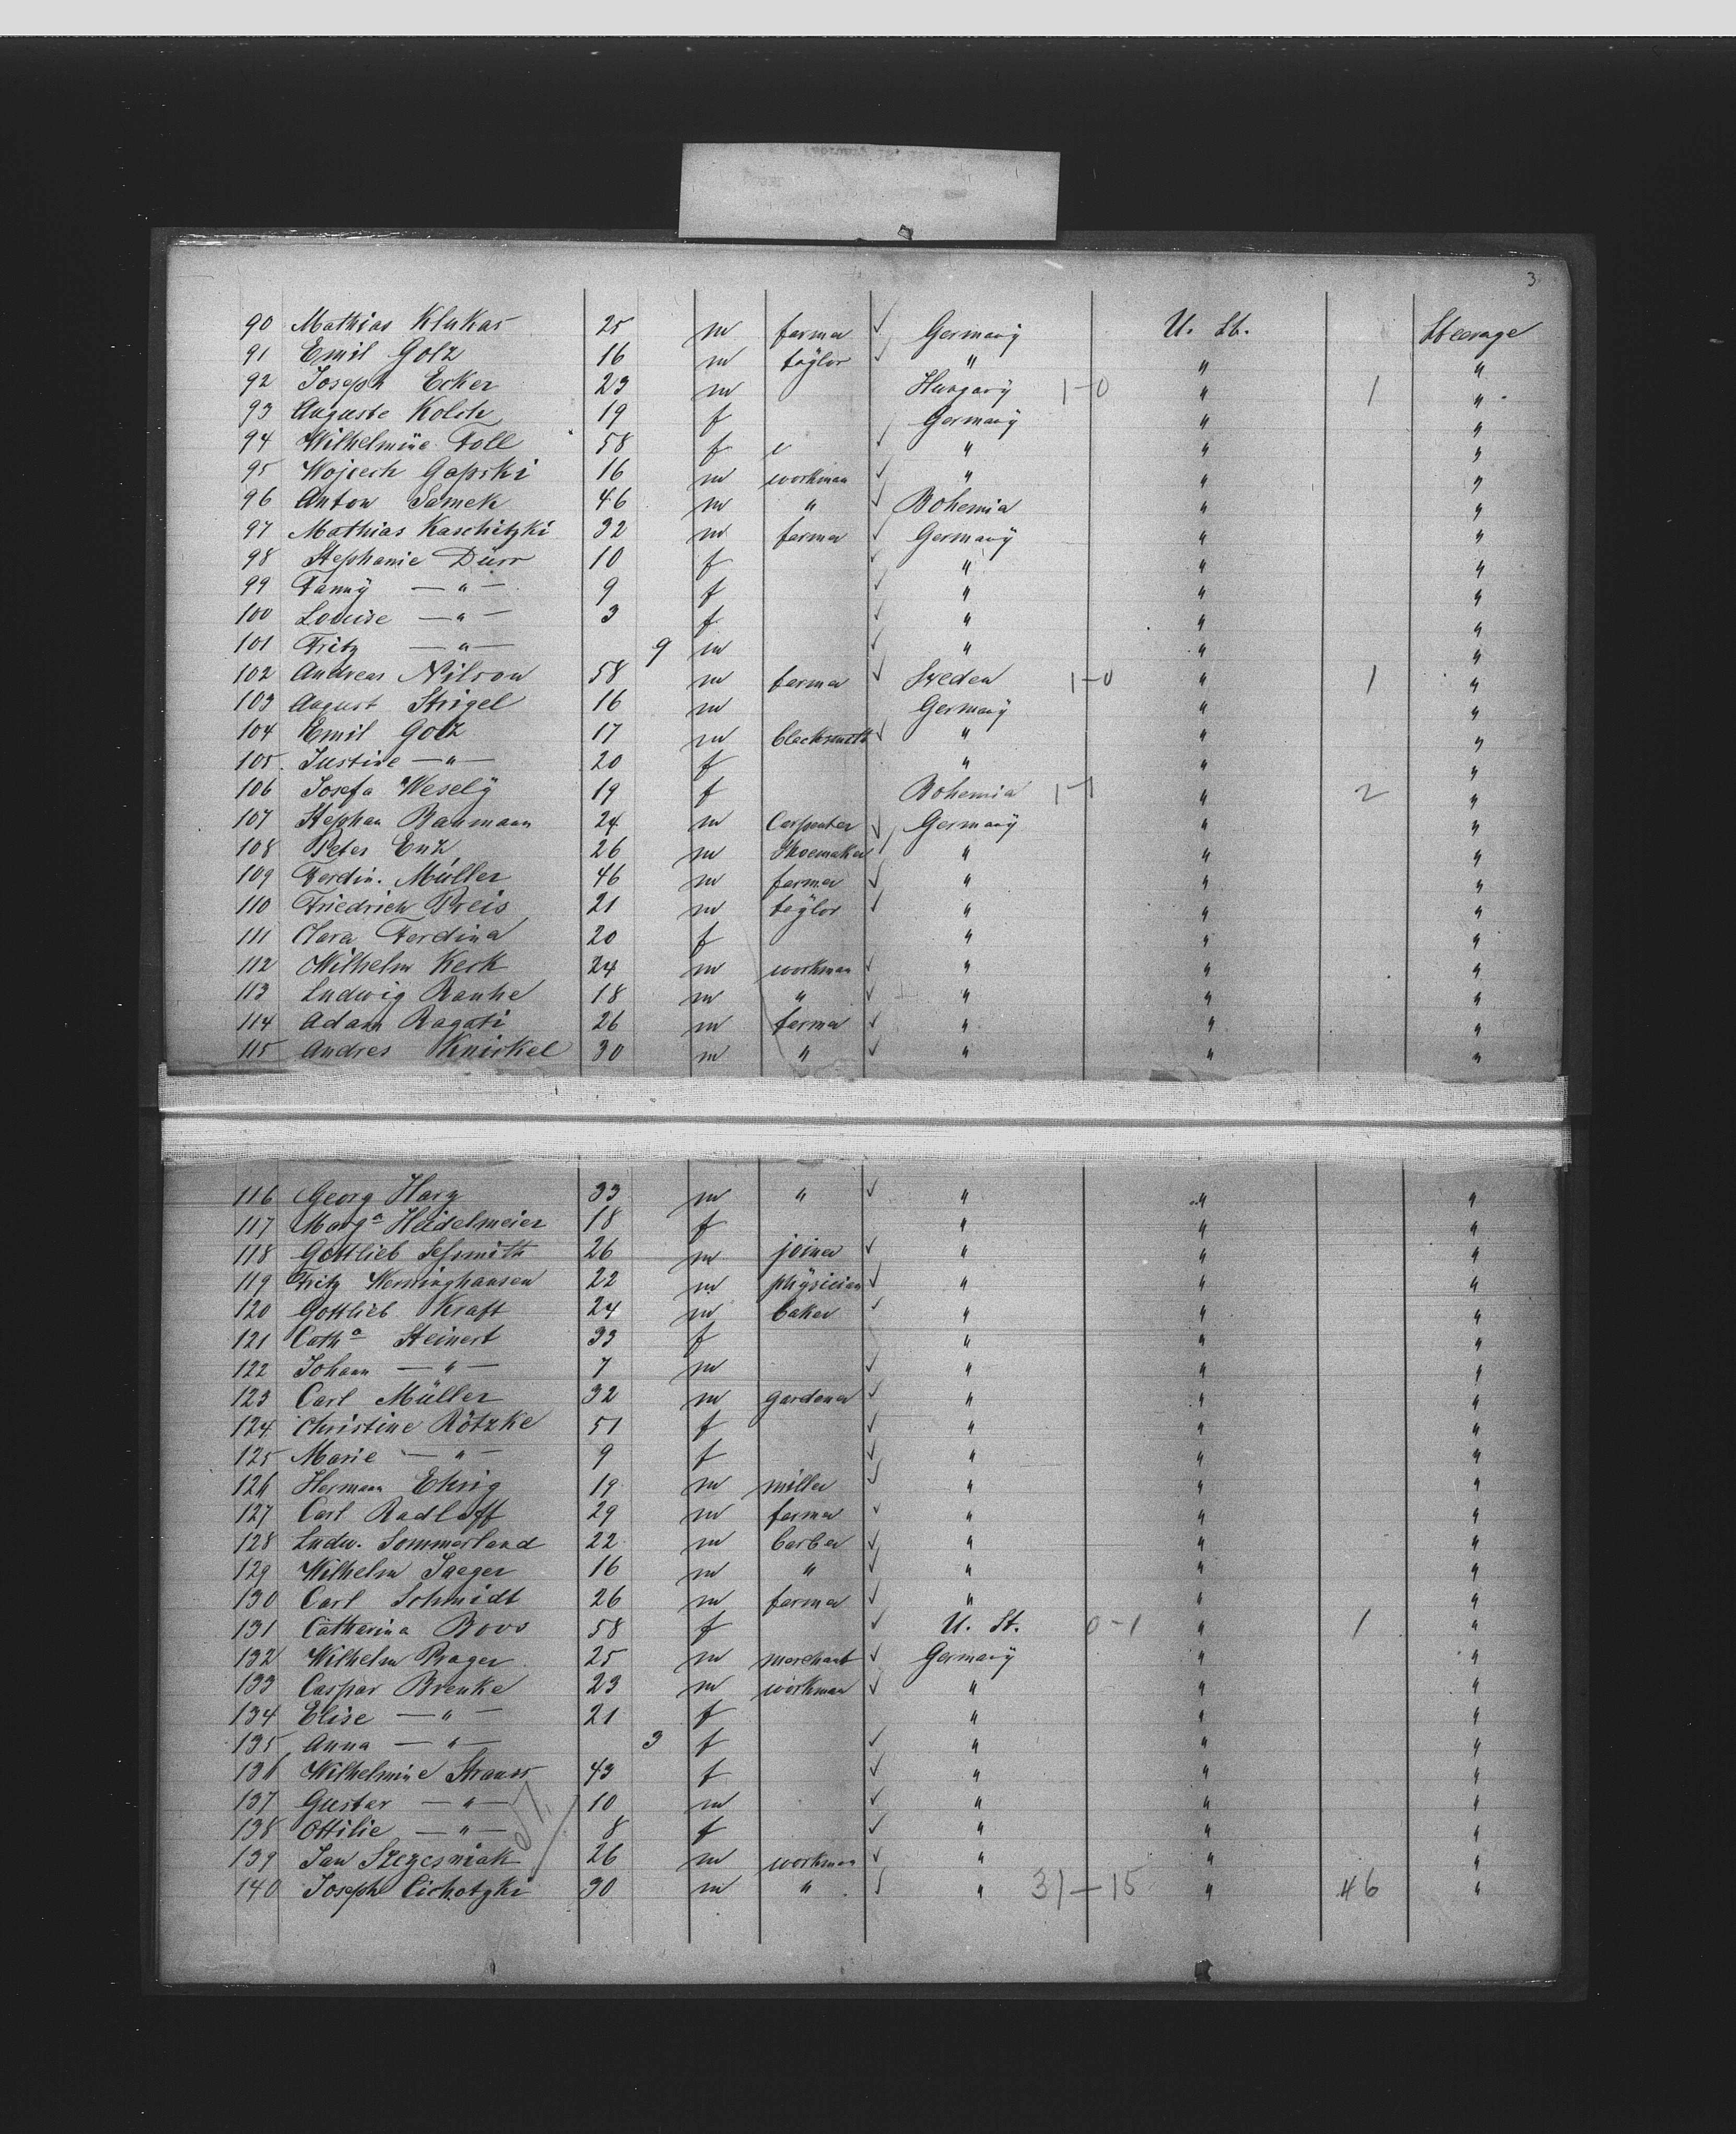 3
90 Mathias Klukas 25 m farmer Germany U. St. Steerage
91 Emil Golz 16 m taylor " " "
92 Joseph Ecker 23 m Hungary 1-0 " 1 "
93 Auguste Kolch 19 f Germany " "
94 Wilhelmine Foll 58 f " " "
95 Wojcech Gapski 16 m workman " " "
96 Anton Samek 46 m " Bohemia " "
97 Mathias Kaschitzki 32 m farmer Germany " "
98 Stephanie Dürr 10 f " " "
99 Fanny — " — 9 f " " "
100 Louise — " — 3 f " " "
101 Fritz — " — 9 m " " "
102 Andreas Nilson 58 m farmer Sweden 1-0 " 1 "
103 August Strigel 16 m Germany " "
104 Emil Golz 17 m blacksmith " " "
105 Justine — " — 20 f " " "
106 Josefa Wesely 19 f Bohemia 1-1 " 2 "
107 Stephan Baumann 24 m Carpenter Germany " "
108 Peter Enk 26 m Shoemaker " " "
109 Ferdin. Müller 46 m farmer " " "
110 Friedrich Preis 21 m taylor " " "
111 Clara Ferdina 20 f " " "
112 Wilhelm Kerk 24 m workman " " "
113 Ludwig Rauhe 18 m " " " "
114 Adam Ragati 26 m farmer " " "
115 Andres Knirkel 30 m " " " "
116 Georg Harz 33 m " " " "
117 Marg.a Heidelmeier 18 f " " "
118 Gottlieb 26 m joiner " " "
119 Fritz Werninghausen 22 m physician " " "
120 Gottlieb Kraft 24 m baker " " "
121 Cath.a Steinert 33 f " " "
122 Johann — " — 7 m " " "
123 Carl Müller 32 m gardener " " "
124 Christine Rötzke 51 f " " "
125 Marie — " — 9 f " " "
126 Hermann Ehrig 19 m miller " " "
127 Carl Radloff 29 m farmer " " "
128 Ludw. Sommerland 22 m barber " " "
129 Wilhelm Jaeger 16 m " " " "
130 Carl Schmidt 26 m farmer " " "
131 Catharina Boos 58 f U. St. 0-1 " 1 "
132 Wilhelm Prager 25 m merchant Germany " "
133 Caspar Brenke 23 m workman " " "
134 Elise — " — 21 f " " "
135 Anna — " — 3 f " " "
136 Wilhelmine Strauss 43 f " " "
137 Gustav — " — 10 m " " "
138 Ottilie — " — 8 f " " "
139 Jan Szczesniak 26 m workman " " "
140 Joseph Cichotzki 30 m " " 31-15 " 46 "